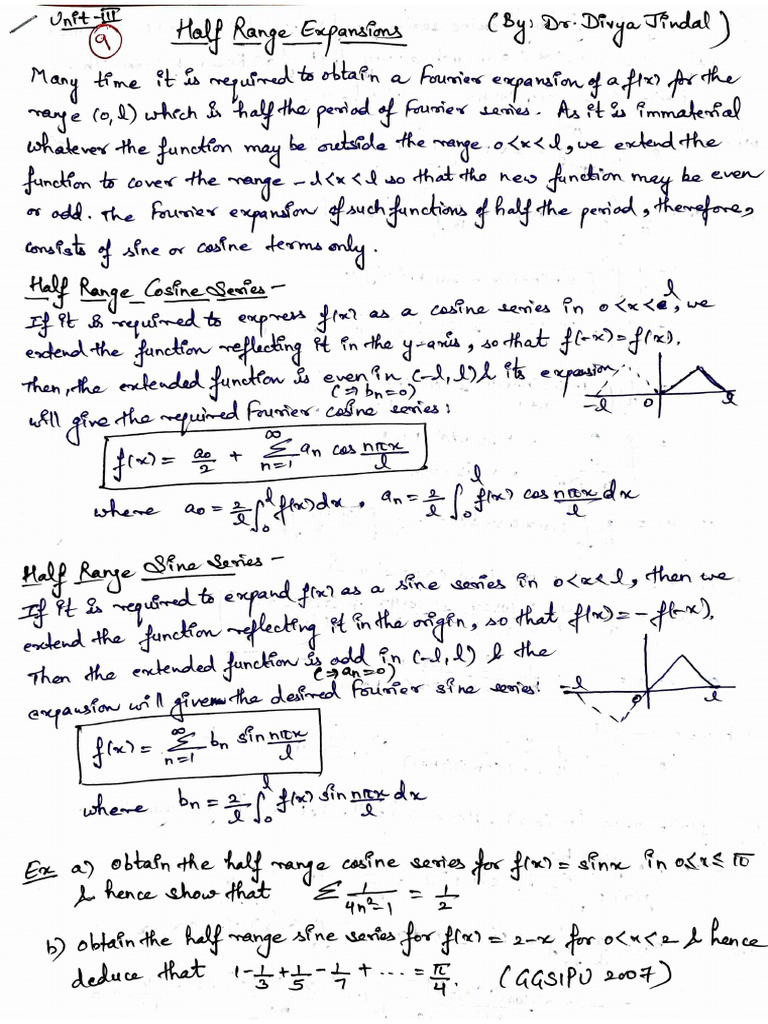 Unit-III
9
Half Range Expansions (By: Dr. Divya Jindal)
Many time it is required to obtain a Fourier expansion of a f(x) for the
range (0, l) which is half the period of Fourier series. As it is immaterial
whatever the function may be outside the range 0<x<l, we extend the
function to cover the range -l<x<l so that the new function may be even
or odd. The Fourier expansion of such functions of half the period, therefore,
consists of sine or cosine terms only.
Half Range Cosine Series -
If it is required to express f(x) as a cosine series in 0<x<l, we
extend the function reflecting it in the y-axis, so that f(-x)=f(x).
Then, the extended function is even in (-l, l) & its expansion
(⇒ bn=0)
will give the required Fourier cosine series:
-l 0 l
f(x) = a0/2 + ∞Σn=1 an cos nπx/l
where a0 = 2/l ∫0^l f(x)dx, an = 2/l ∫0^l f(x) cos nπx/l dx
Half Range Sine Series -
If it is required to expand f(x) as a sine series in 0<x<l, then we
extend the function reflecting it in the origin, so that f(x) = -f(-x).
Then the extended function is odd in (-l, l) & the
(⇒ an=0)
expansion will given the desired Fourier sine series:
-l 0 l
f(x) = ∞Σn=1 bn sin nπx/l
where bn = 2/l ∫0^l f(x) sin nπx/l dx
Ex a) obtain the half range cosine series for f(x) = sinx in 0≤x≤π
& hence show that Σ 1/4n²-1 = 1/2
b) obtain the half range sine series for f(x) = 2-x for 0<x<2 & hence
deduce that 1-1/3+1/5-1/7+... = π/4. (GGSIPU 2007)